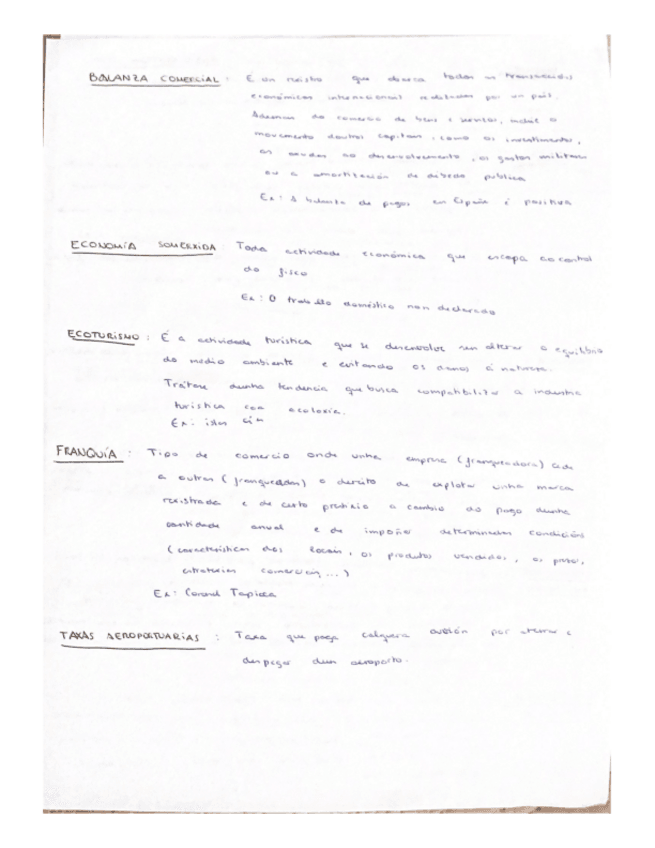 BALANZA COMERCIAL : É un rexistro que abarca todas as transaccións
económicas internacionais realizadas por un país.
Ademais do comercio de bens e servizos, inclúe o
movemento doutros capitais, como os investimentos,
as axudas ao desenvolvemento, os gastos militares
ou a amortización de débeda pública
Ex: A balanza de pagos en España é positiva
ECONOMÍA SOMERXIDA Toda actividade económica que escapa ao control
do fisco
Ex: O traballo doméstico non declarado
ECOTURISMO : É a actividade turística que se desenvolve sen alterar o equilibrio
do medio ambiente e evitando os danos á natureza.
Trátase dunha tendencia que busca compatibilizar a industria
turística coa ecoloxía.
Ex: illas Cíes
FRANQUÍA : Tipo de comercio onde unha empresa (franqueadora) cede
a outras (franqueadas) o dereito de explotar unha marca
rexistrada e de certo prestixio a cambio do pago dunha
cantidade anual e de impoñer determinadas condicións
(características dos locais, os produtos vendidos, os prezos,
estratexias comerciais, ...)
Ex: Coronel Tapiocca
TAXAS AEROPORTUARIAS : Taxa que paga calquera avión por aterrar e
despegar dun aeroporto.